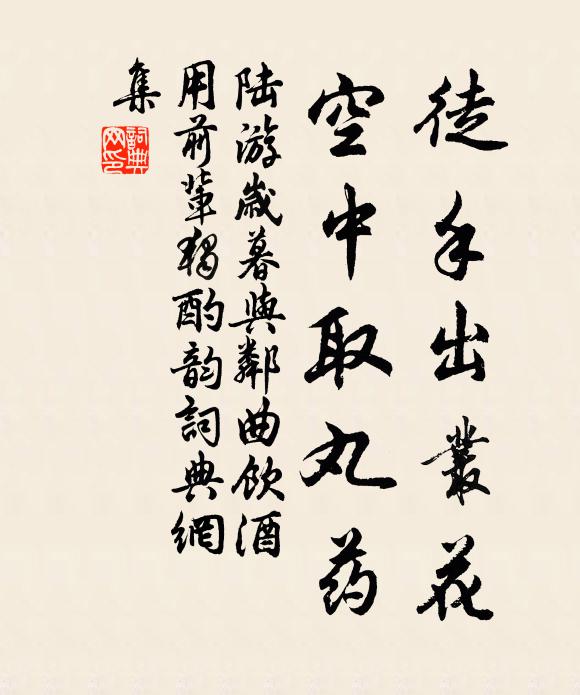 徒手出叢花
空中取丸药
陆游歲暮與鄰曲飲酒
用前輩獨酌韵詞典網
集
詞典网印